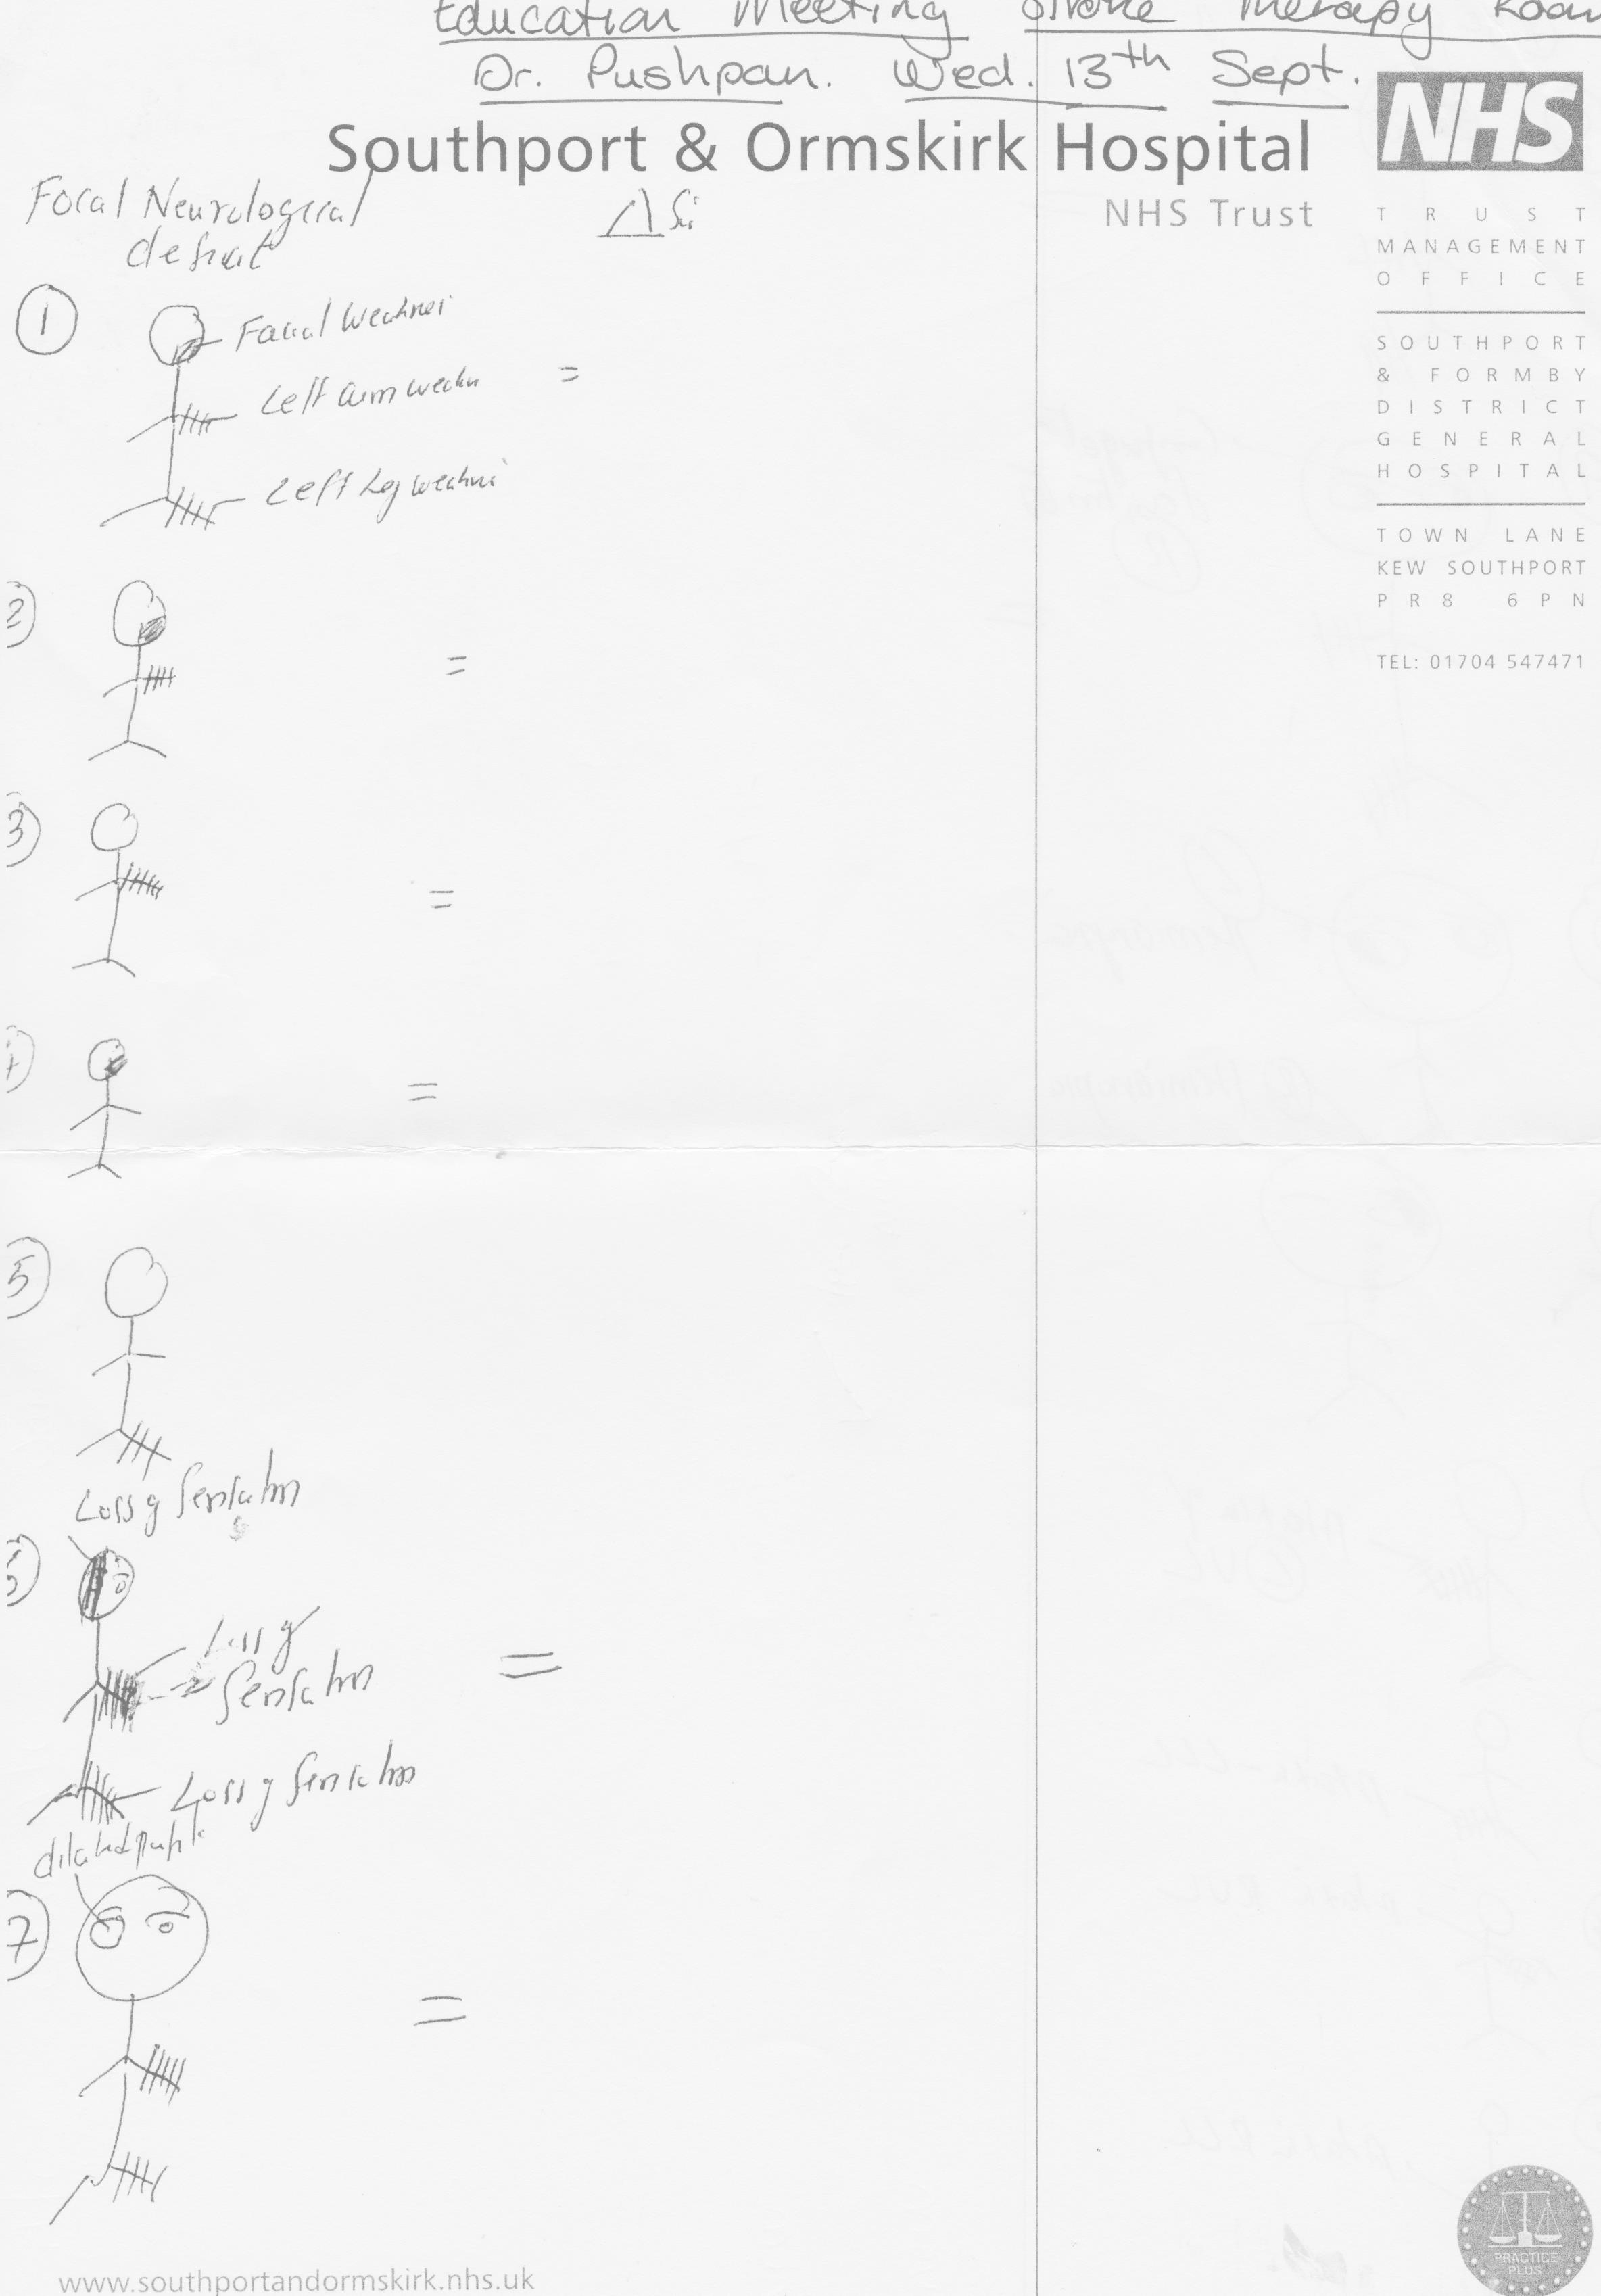 Education Meeting Stroke Therapy Room
Dr. Pushpan. Wed. 13th Sept.
Southport & Ormskirk Hospital
NHS
NHS Trust
TRUST
MANAGEMENT
OFFICE
SOUTHPORT
& FORMBY
DISTRICT
GENERAL
HOSPITAL
TOWN LANE
KEW SOUTHPORT
PR8 6PN
TEL: 01704 547471
Focal Neurological
deficit
1
Facial Weakness
=
Left arm weakn
Left Leg weakness
2
=
3
=
=
5
Loss of Sensation
6
Loss of
Sensation
=
Loss of Sensation
dilated pupil
7
=
www.southportandormskirk.nhs.uk
PRACTICE
PLUS